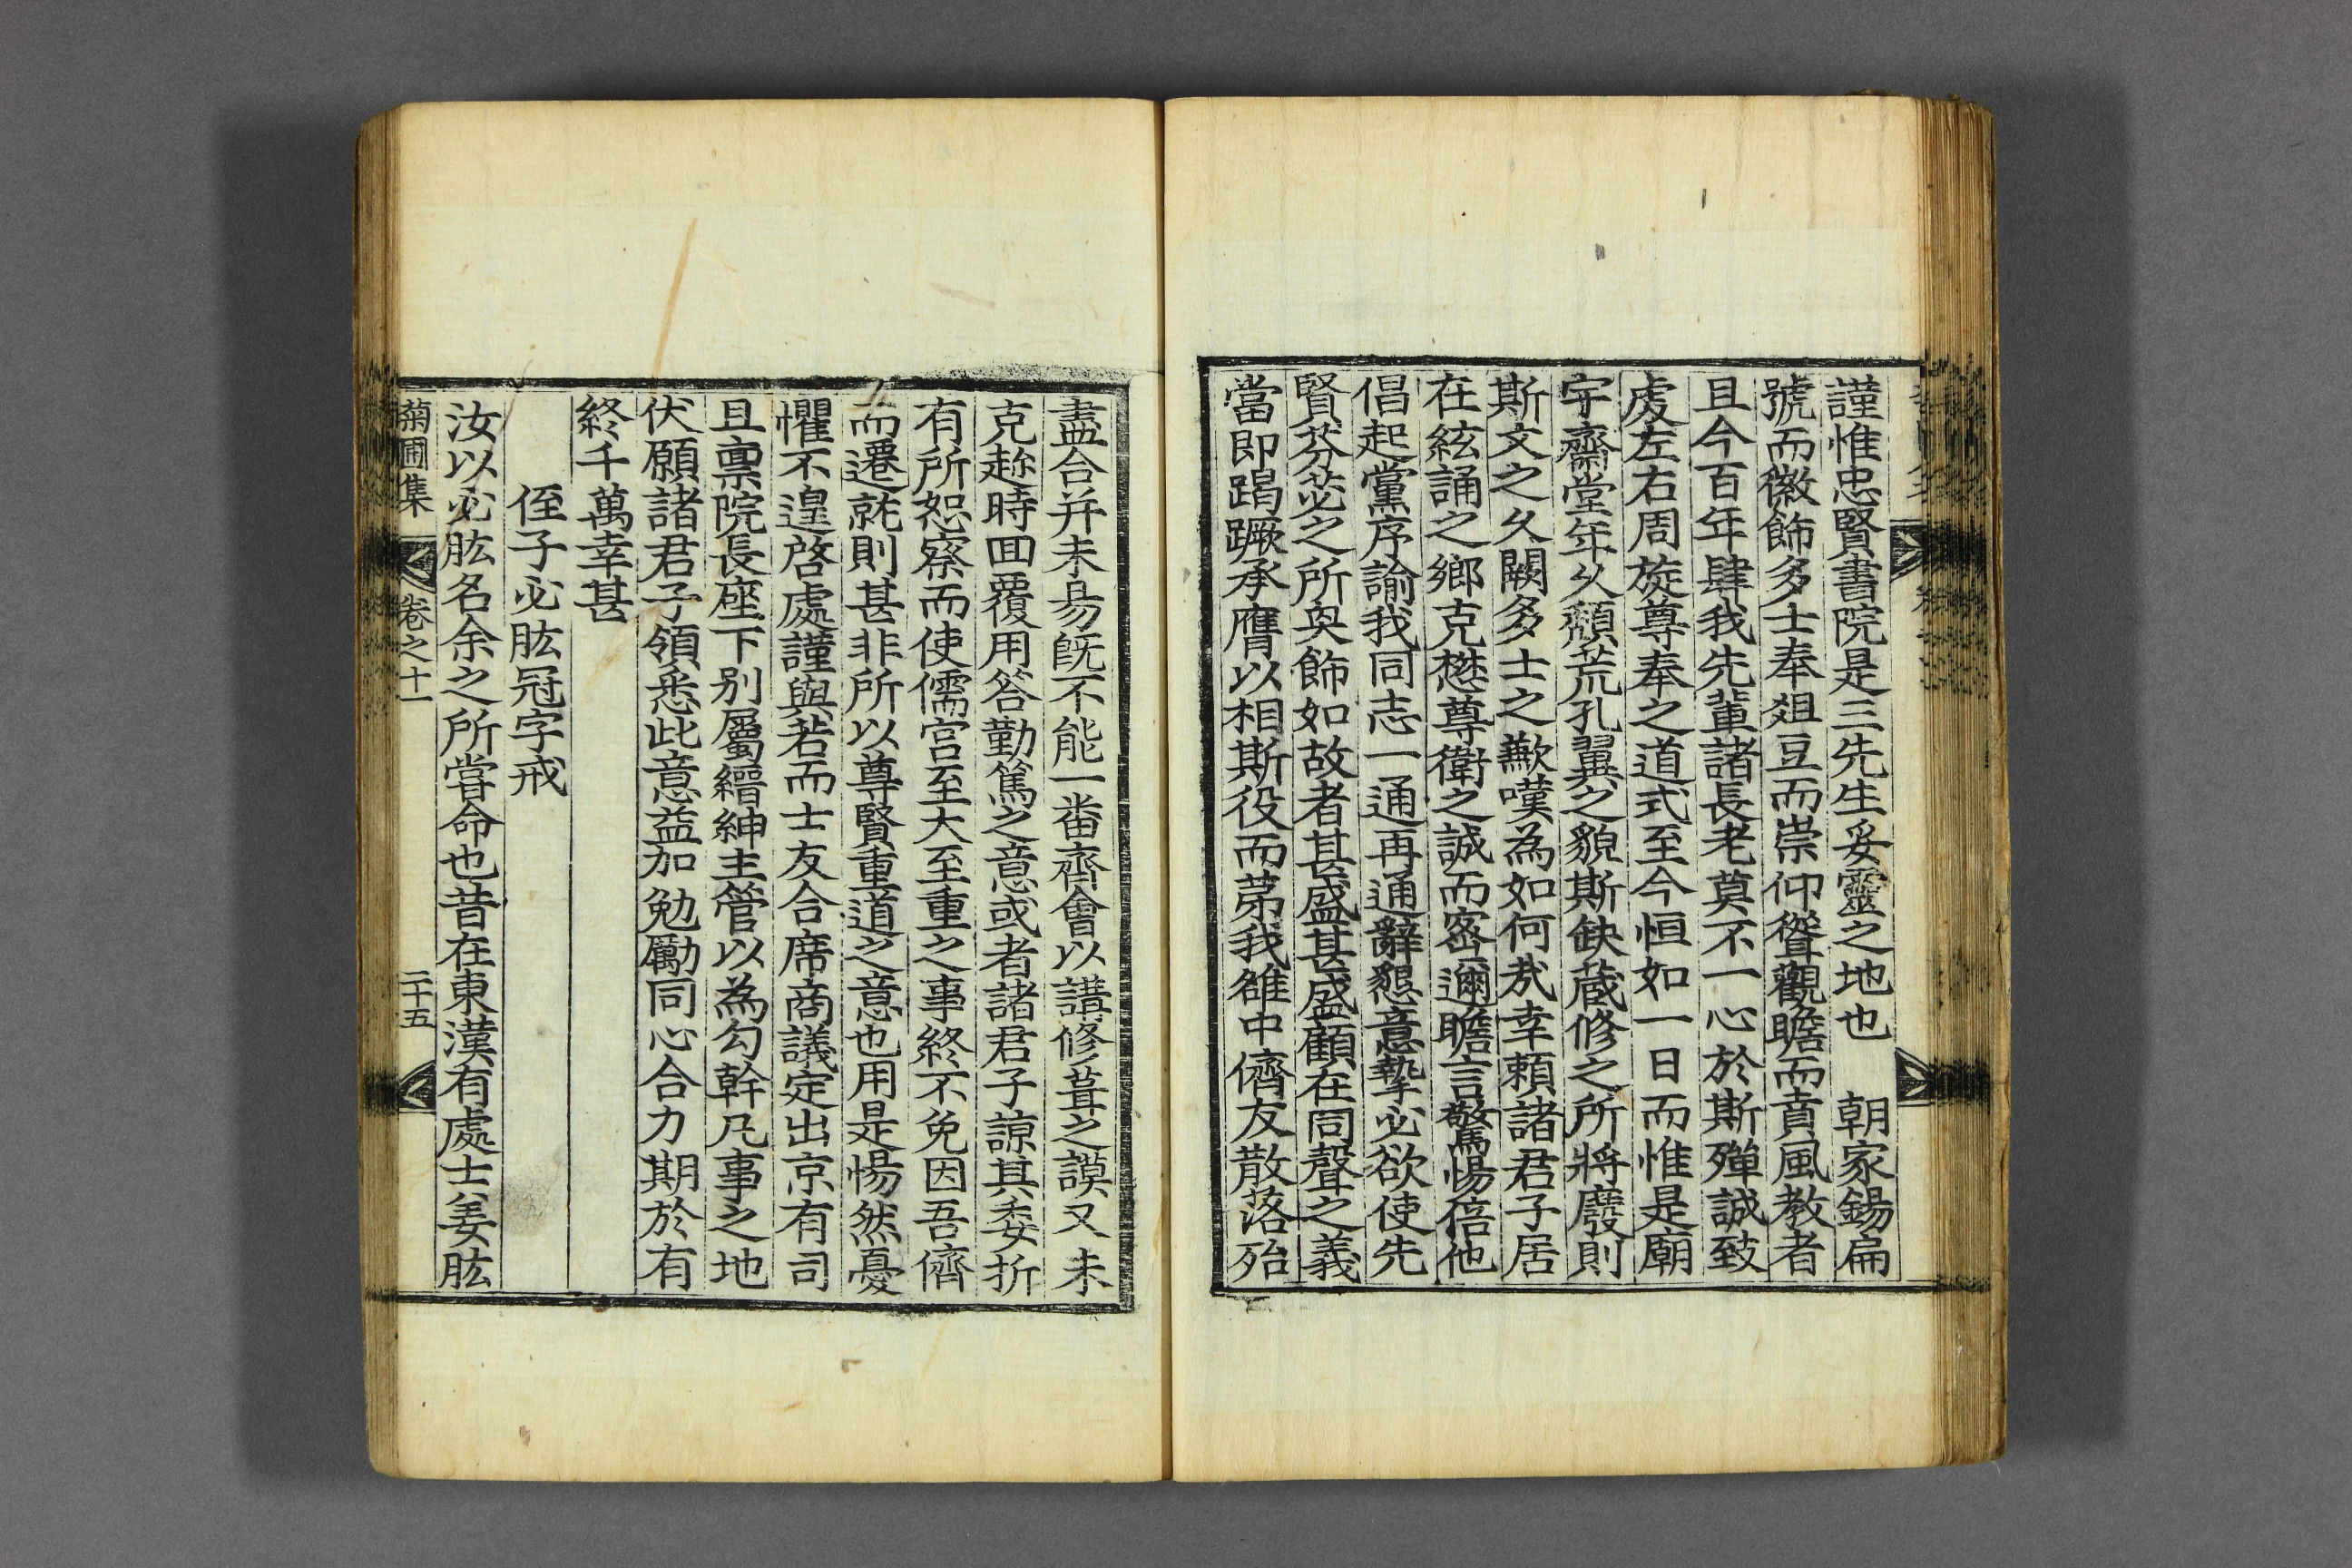 謹惟忠賢書院是三先生妥靈之地也　朝家錫扁
號而徽飾多士奉俎豆而崇仰聳觀瞻而賁風教者
且今百年肆我先輩諸長老莫不一心於斯殫誠致
虔左右周旋尊奉之道式至今恒如一日而惟是廟
宇齋堂年久頹荒孔翼之貌斯缺葳修之所將廢則
斯文之久闕多士之歉嘆為如何哉幸賴諸君子居
在絃誦之鄉克懋尊衛之誠而密邇瞻言驚惕倍他
倡起黨序諭我同志一通再通辭懇意摯必欲使先
賢芬苾之所奐飾如故者甚盛甚盛顧在同聲之義
當即蹋蹶承膺以相斯役而苐我雒中儕友散落殆
盡合并未易旣不能一番齊會以講修葺之謨又未
克趂時回覆用答勤篤之意或者諸君子諒其委折
有所恕察而使儒宮至大至重之事終不免因吾儕
而遷就則甚非所以尊賢重道之意也用是惕然憂
懼不遑啓處謹與若而士友合席商議定出京有司
且禀院長座下別屬縉紳主管以為勾幹凡事之地
伏願諸君子領悉此意益加勉勵同心合力期於有
終千萬幸甚
侄子必肱冠字戒
汝以必肱名余之所嘗命也昔在東漢有處士姜肱
菊圃集　卷之十一　二十五